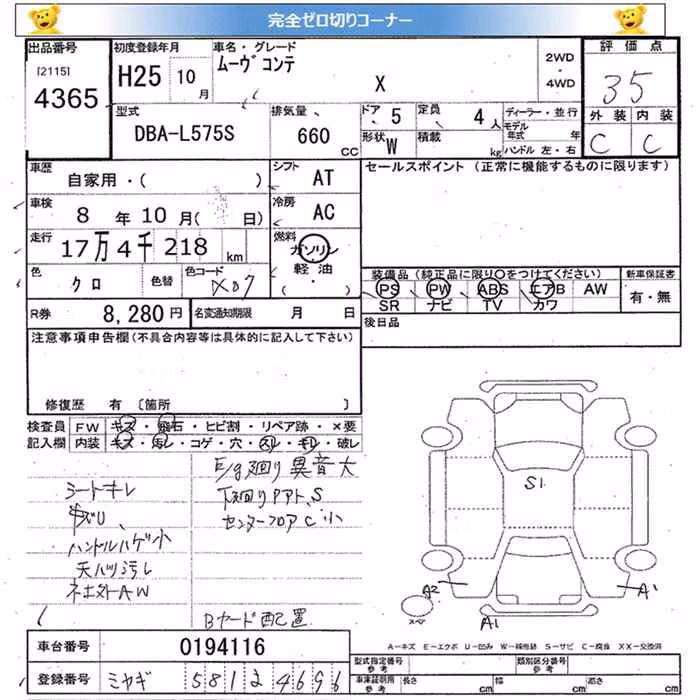 完全ゼロ切りコーナー
出品番号 [2115] 4365
初度登録年月 H25 10月
車名・グレード ムーヴコンテ X
2WD・4WD
評価点 3.5
外装 C 内装 C
型式 DBA-L575S
排気量 660 CC
ドア 5
形状 W
定員 4人
積載 kg
ディーラー・並行
モデル年式 年
ハンドル 左・右
車歴 自家用・( )
シフト AT
セールスポイント (正常に機能するものに限ります)
車検 8年10月( 日)
冷房 AC
走行 17万4千218km
燃料 ガソリン・軽油・( )
色 クロ
色替
色コード X07
装備品(純正品に限り○をつけてください)
PS PW ABS エアB AW
SR ナビ TV カワ
新車保証書 有・無
R券 8,280円
名変通知期限 月 日
後日品
注意事項申告欄(不具合内容等は具体的に記入して下さい)
修復歴 有 〔箇所 〕
検査員記入欄
FW キズ・飛石・ヒビ割・リペア跡・×要
内装 キズ・汚レ・コゲ・穴・スレ・キレ・破レ
シートキレ
ハンドルハゲ小
天バリ汚レ
E/g廻り異音大
下廻りPアト、S
センターフロアC小
Bヤード配置
S1
A2
A1
A1
スペア
A=キズ E=エクボ U=凹み W=補修跡 S=サビ C=腐蝕 XX=交換済
車台番号 0194116
登録番号 ミヤギ 581 2 4696
型式指定番号 参考
類別区分番号 参考
車庫証明用 参考 長さ cm 幅 cm 高さ cm